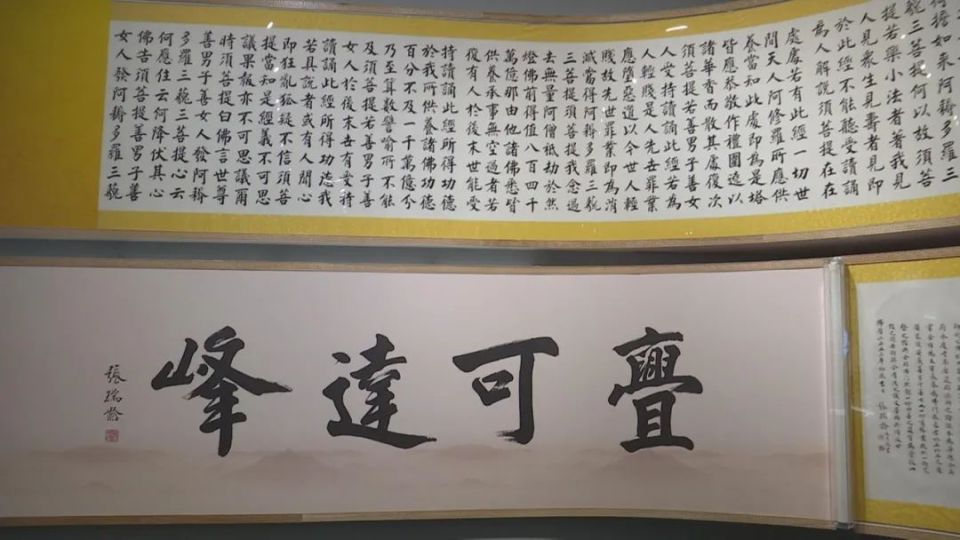 何擔如來阿耨多羅三
藐三菩提何以故須菩
提若樂小法者著我見
人見眾生見壽者見即
於此經不能聽受讀誦
為人解說須菩提在在
處處若有此經一切世
間天人阿修羅所應供
養當知此處即為是塔
皆應恭敬作禮圍遶以
諸華香而散其處復次
須菩提若善男子善女
人受持讀誦此經若為
人輕賤是人先世罪業
應墮惡道以今世人輕
賤故先世罪業即為消
滅當得阿耨多羅三藐
三菩提須菩提我念過
去無量阿僧祇劫於然
燈佛前得值八百四千
萬億那由他諸佛悉皆
供養承事無空過者若
復有人於後末世能受
持讀誦此經所得功德
於我所供養諸佛功德
百分不及一千萬億分
乃至算數譬喻所不能
及須菩提若善男子善
女人於後末世有受持
讀誦此經所得功德我
若具說者或有人聞心
即狂亂狐疑不信須菩
提當知是經義不可思
議果報亦不可思議爾
時須菩提白佛言世尊
善男子善女人發阿耨
多羅三藐三菩提心云
何應住云何降伏其心
佛告須菩提善男子善
女人發阿耨多羅三藐
疊可達峰
張瑞齡